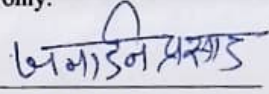 only.
जनार्दन प्रसाद